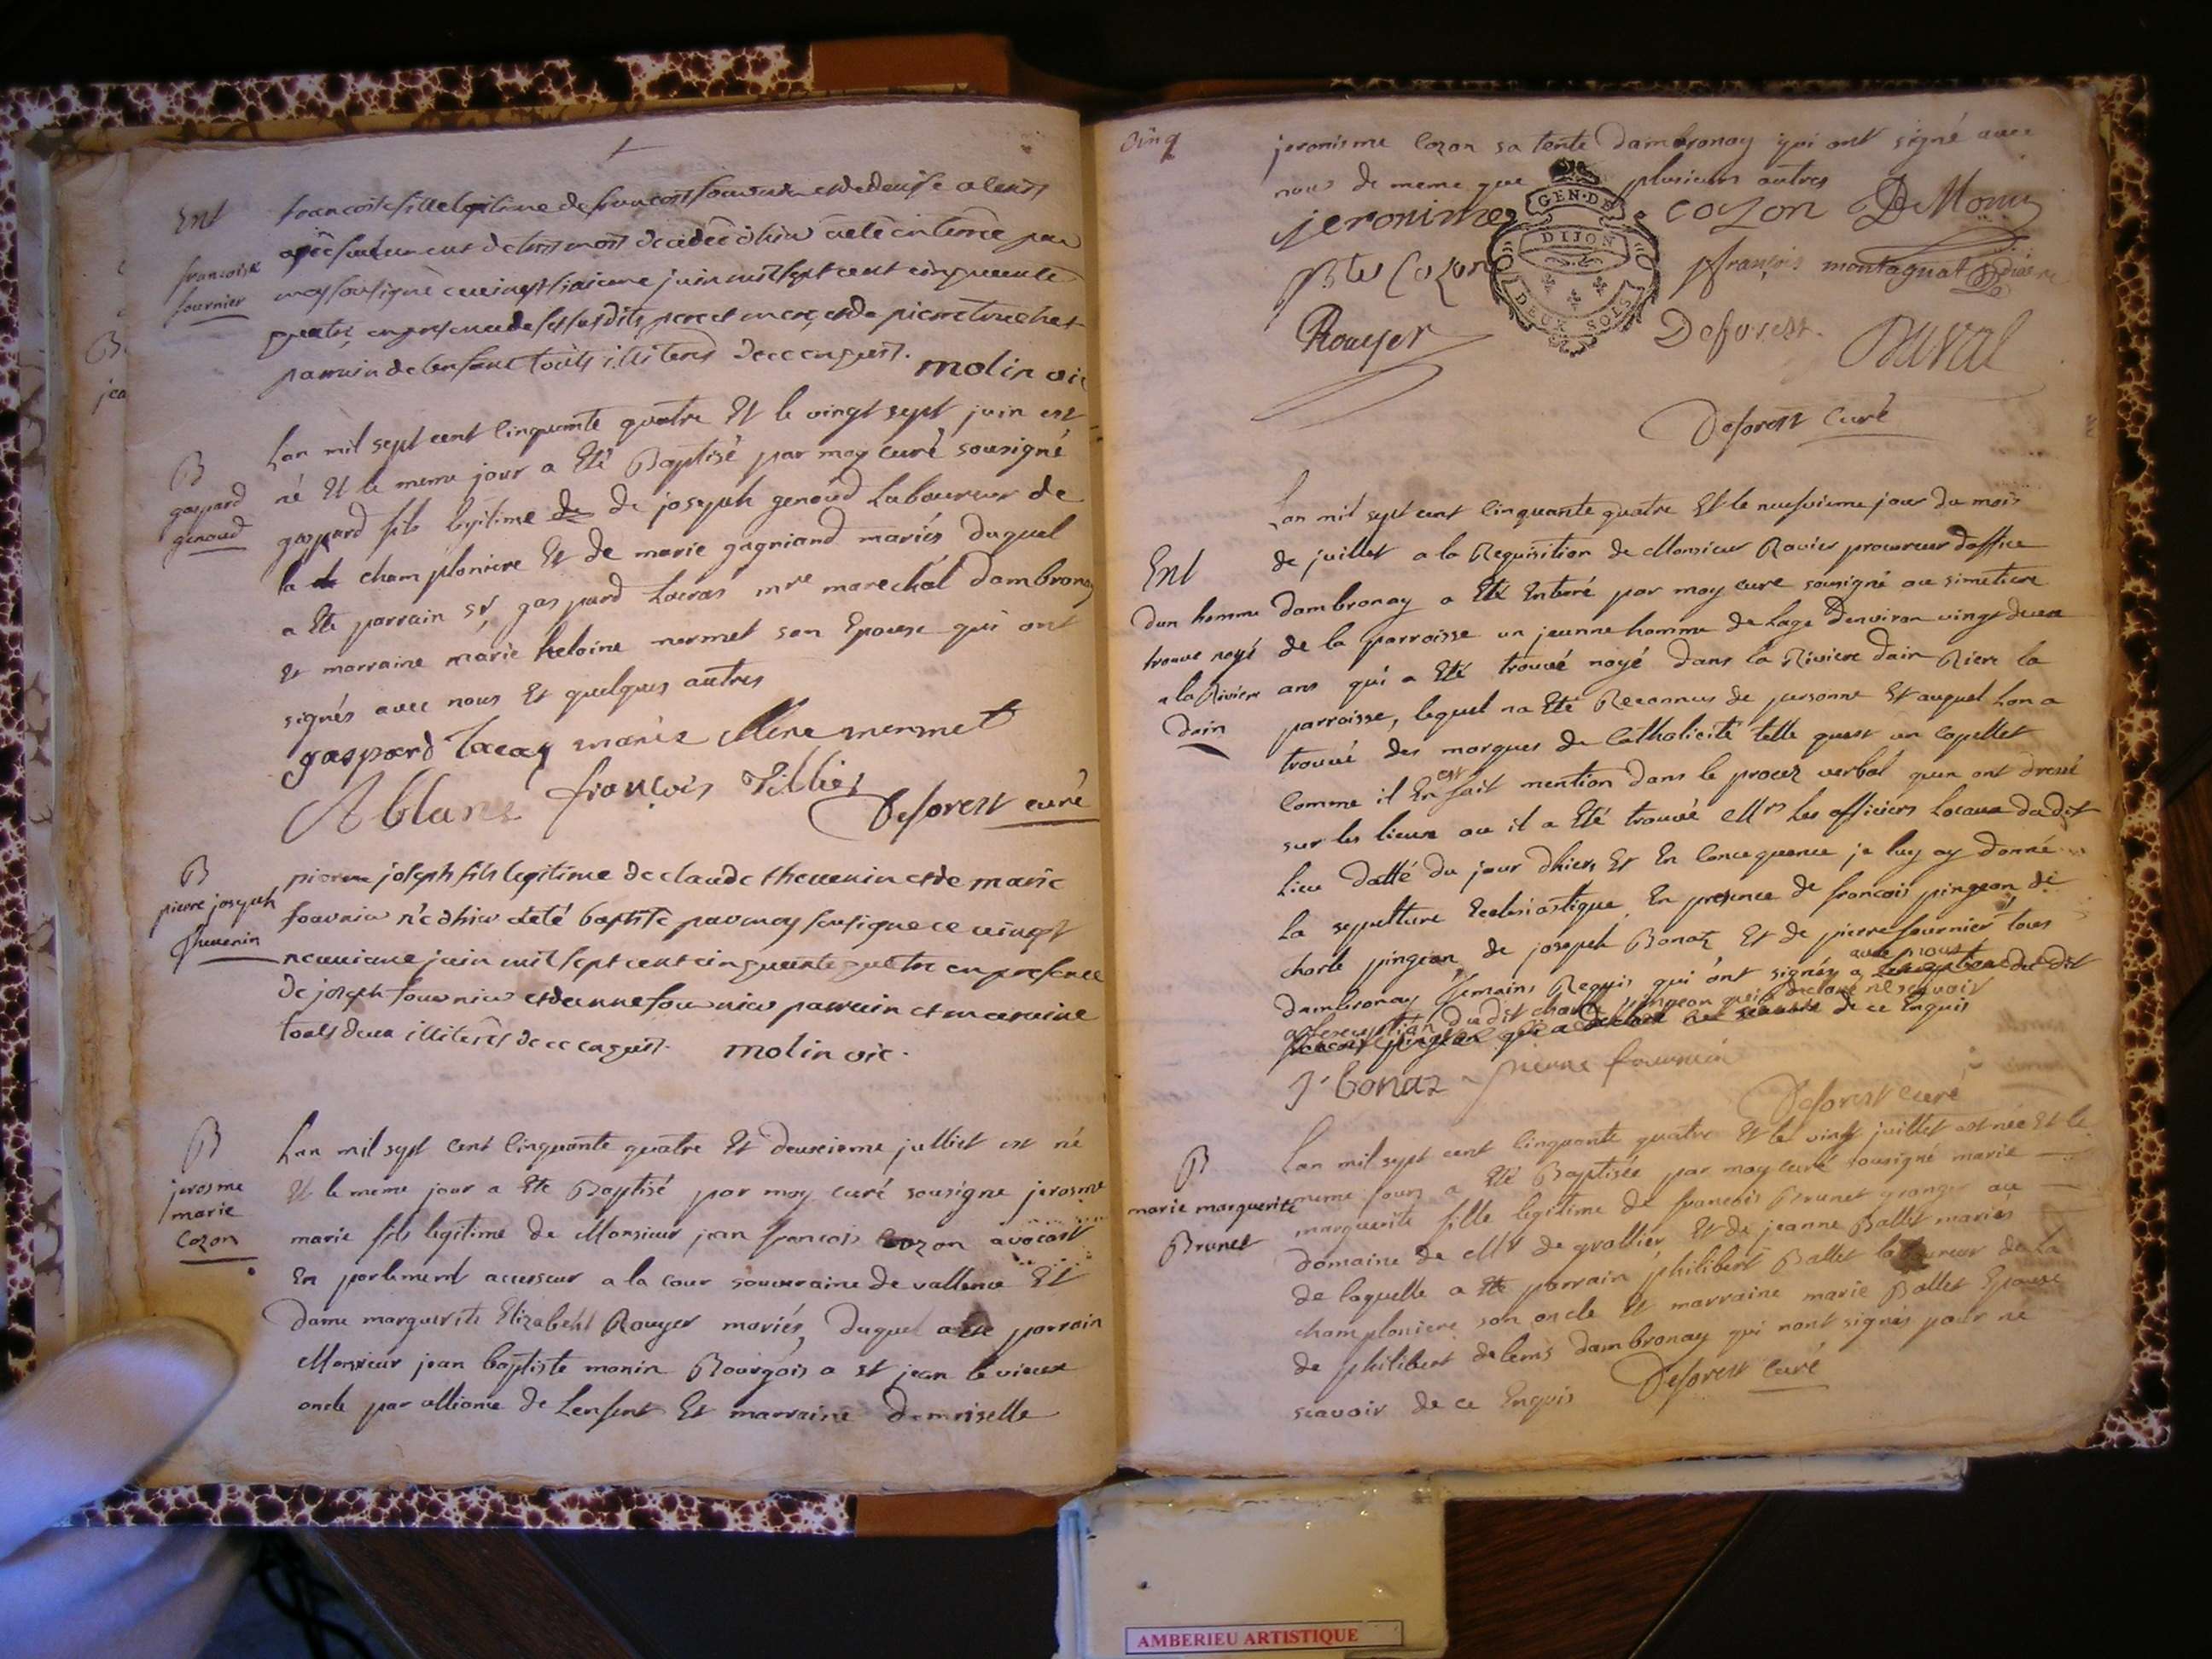 Ent
francoise
fournier
francoise fille legitime de francois fournier et de denise
agée seulement de trois mois decedée dhier a eté enterrée par
moy sousigné ce vingt sixieme juin mil sept cent cinquante
quatre en presence de ses susdits pere et mere, et de pierre truchet
parrain de lenfant touts illiterés de ce enquis.
molin vic
B
gaspard
genoud
Lan mil sept cent Cinquante quatre Et le vingt sept juin est
né Et le meme jour a Eté Baptisé par moy curé sousigné
gaspard fils legitime de de joseph genoud Laboureur de
la champloniere Et de marie gagniand mariés duquel
a Eté parrain sr, gaspard Lacras mre marechal dambronay
Et marraine marie heloine mermet son Epouse qui ont
signés avec nous Et quelques autres
gaspard Lacras marie ellene mermet
A blanc françois Tillier
Deforest curé
B
pierre joseph
Thevenin
pierre joseph fils legitime de claude thevenin et de marie
fournier né dhier a eté baptisé par moy sousigne ce vingt
neuvieme juin mil sept cent cinquante quatre en presence
de joseph fournier et de anne fournier parrain et marraine
touts deux illiterés de ce enquis. molin vic.
B
jerosme
marie
Cozon
Lan mil sept Cent Cinquante quatre Et deuxieme julliet est né
Et le meme jour a Eté Baptisé par moy curé sousigne jerosme
marie fils legitime de Monsieur jean francois Cozon avocast
En parlement accesseur a la cour souveraine de vallence Et
Dame marguerite Elizabeht Rouyer mariés, duquel a Eté parrain
Monsieur jean baptiste monin Bourgois a st jean le vieux
oncle par alliance de Lenfent Et marraine Demoiselle
Cinq
jeronisme Cozon sa tente Dambronay qui ont signé avec
nous de meme que plusieurs autres
jeronime cozon DeMonin
GEN. DE
DIJON
DEUX SOLS
Cozon françois montagnat
Rouyer Deforest. Duval
Deforest Curé
Ent
dun homme
trouvé noyé
a la Riviere
dain
Lan mil sept cent Cinquante quatre Et le neufvieme jour du mois
de juillet a la Requisition de Monsieur Ravier procureur doffice
Dambronay a Eté Enterré par moy curé sousigné au simetiere
de la parroisse un jeunne homme de Lage Denviron vingt deux
ans qui a Eté trouvé noyé dans la Riviere dain Riere la
parroisse, lequel na Eté Reconnus de personne Et auquel Lon a
trouvé des marques de Catholicité telle quest un Capellet
Comme il En est fait mention dans le procez verbal quen ont dressé
sur les lieux ou il a Eté trouvé Mrs Les officiers Locaux dudit
Lieu datté du jour dhier, Et En Concequence je luy ay donné
La sepulture Ecclesiastique En presence de francois pingeon, de
charle pingeon, de joseph Bonaz Et de pierre fournier tous
dambronay Temains Requis qui ont signés avec nous a Lexception dudit
a Lexception dudit charle pingeon qui a declare ne scavoir
francois pingeon qui a declaré ne scavoir de ce Enquis
J. bonaz pierre fournier
Deforest curé
B
marie marguerite
Brunet
Lan mil sept cent Cinquante quatre Et le vingt juillet est née Et le
meme jour a Eté Baptisée par moy curé sousigné marie
marguerite fille legitime de francois Brunet granger au
domaine de Mr de grollier Et de jeanne Ballet mariés
de laquelle a Eté parrain philibert Ballet laboureur de La
champloniere son oncle Et marraine marie Ballet Epouse
de philibert dambronay qui nont signés pour ne
scavoir de ce Enquis Deforest Curé
AMBERIEU ARTISTIQUE